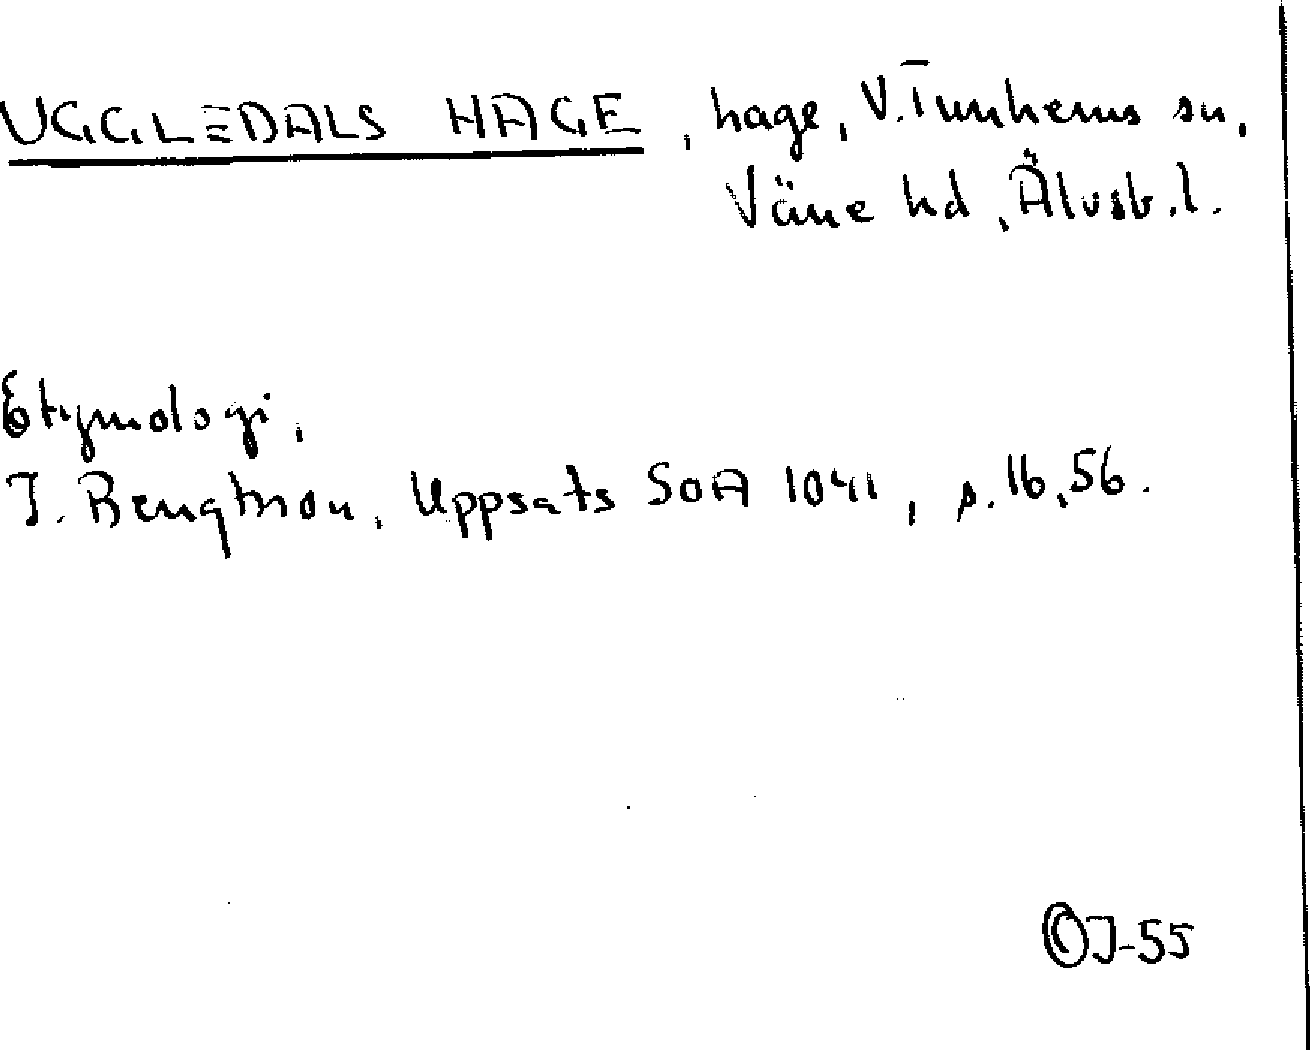 UGGLEDALS HAGE, hage, V. Tunhems sn,
Väne hd, Älvsb. l.
Etymologi,
I. Bengtson, Uppsats SOA 1041, s. 16, 56.
OJ-55